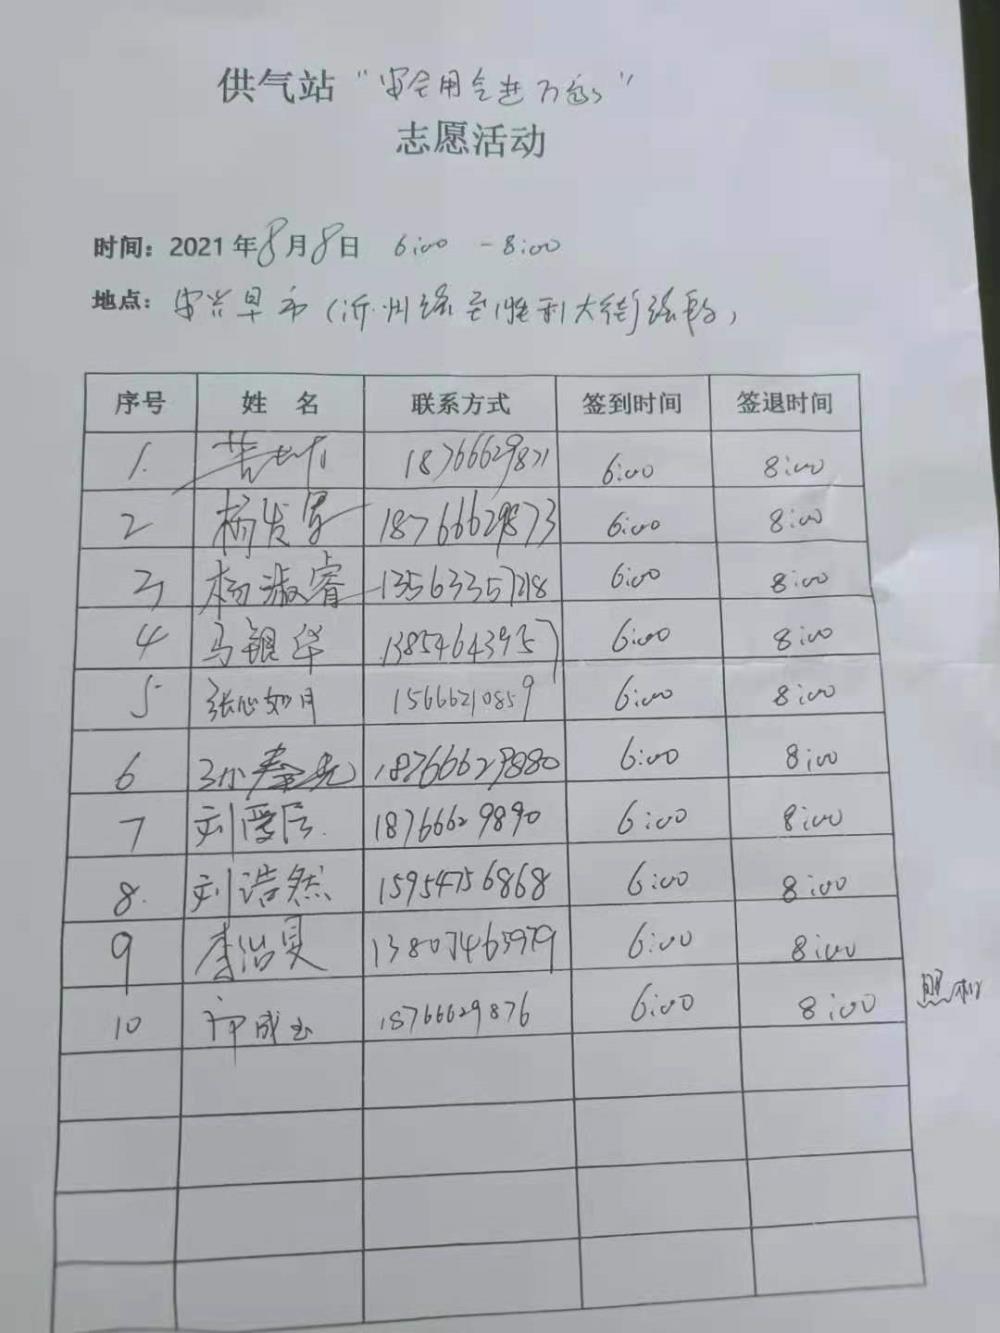 供气站“安全用气进万家”
志愿活动
时间：2021年8月8日 6:00-8:00
地点：安兴早市（沂州路至胜利大街路段）
序号 姓名 联系方式 签到时间 签退时间
1. 18766629871 6:00 8:00
2 杨发军 18766629873 6:00 8:00
3 杨淑睿 13563357218 6:00 8:00
4 马银华 13854643957 6:00 8:00
5 张心如月 15666210859 6:00 8:00
6 孙秦先 18766629880 6:00 8:00
7 刘 18766629890 6:00 8:00
8. 刘浩然 15954756868 6:00 8:00
9 李治昊 6:00 8:00
10 成玉 18766629876 6:00 8:00
照相